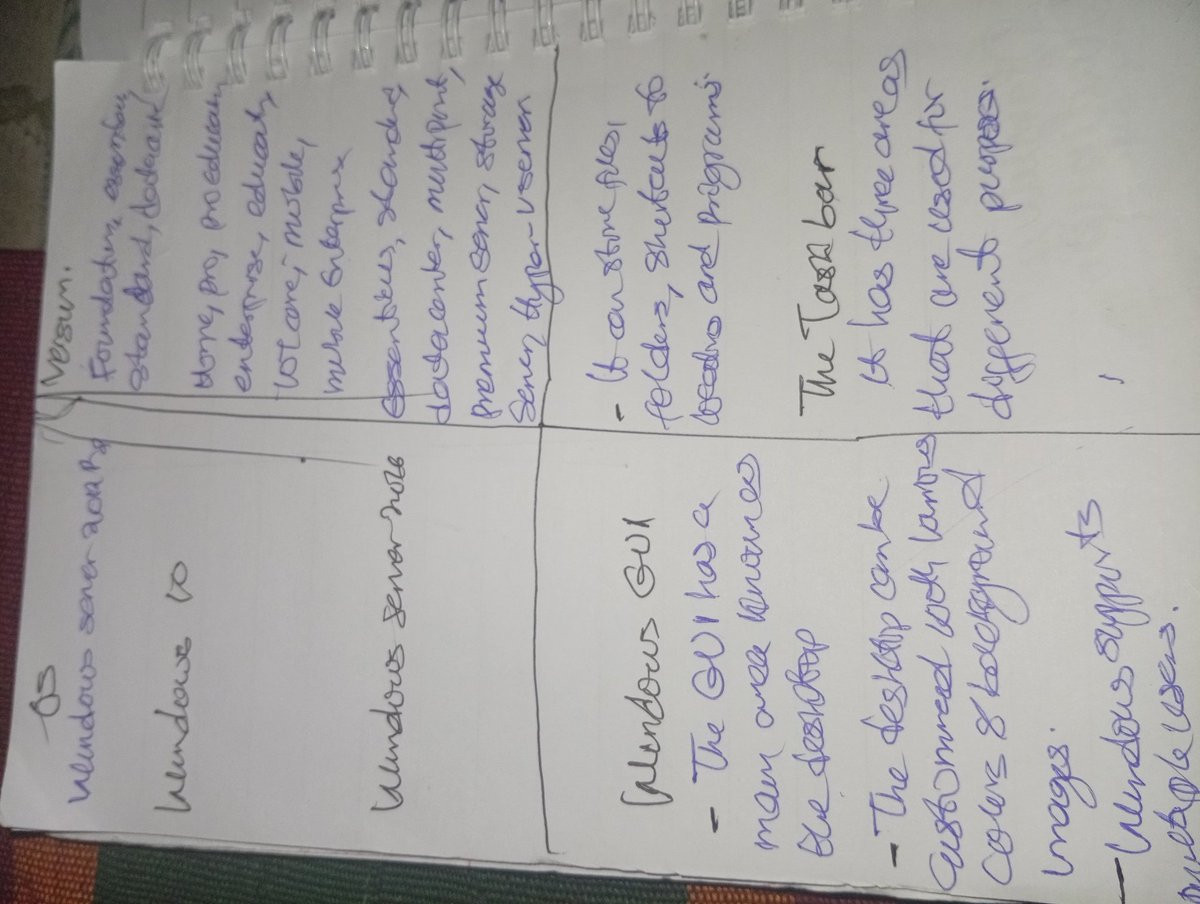 OS
Version.
Windows server 2012 R2
Foundation, essentials,
standard, datacenter
Windows 10
Home, pro, pro education
enterprise, education,
IoT core, mobile,
mobile enterprise
Windows server 2016
essentials, standard,
datacenter, multipoint,
premium server, storage
server, Hyper-V server
Windows GUI
- The GUI has a
main area known as
the desktop
- The desktop can be
customized with various
colors & background
images.
- Windows supports
multiple users.
- It can store files,
folders, shortcuts to
location and programs.
The Task bar
It has three areas
that are used for
different purposes.